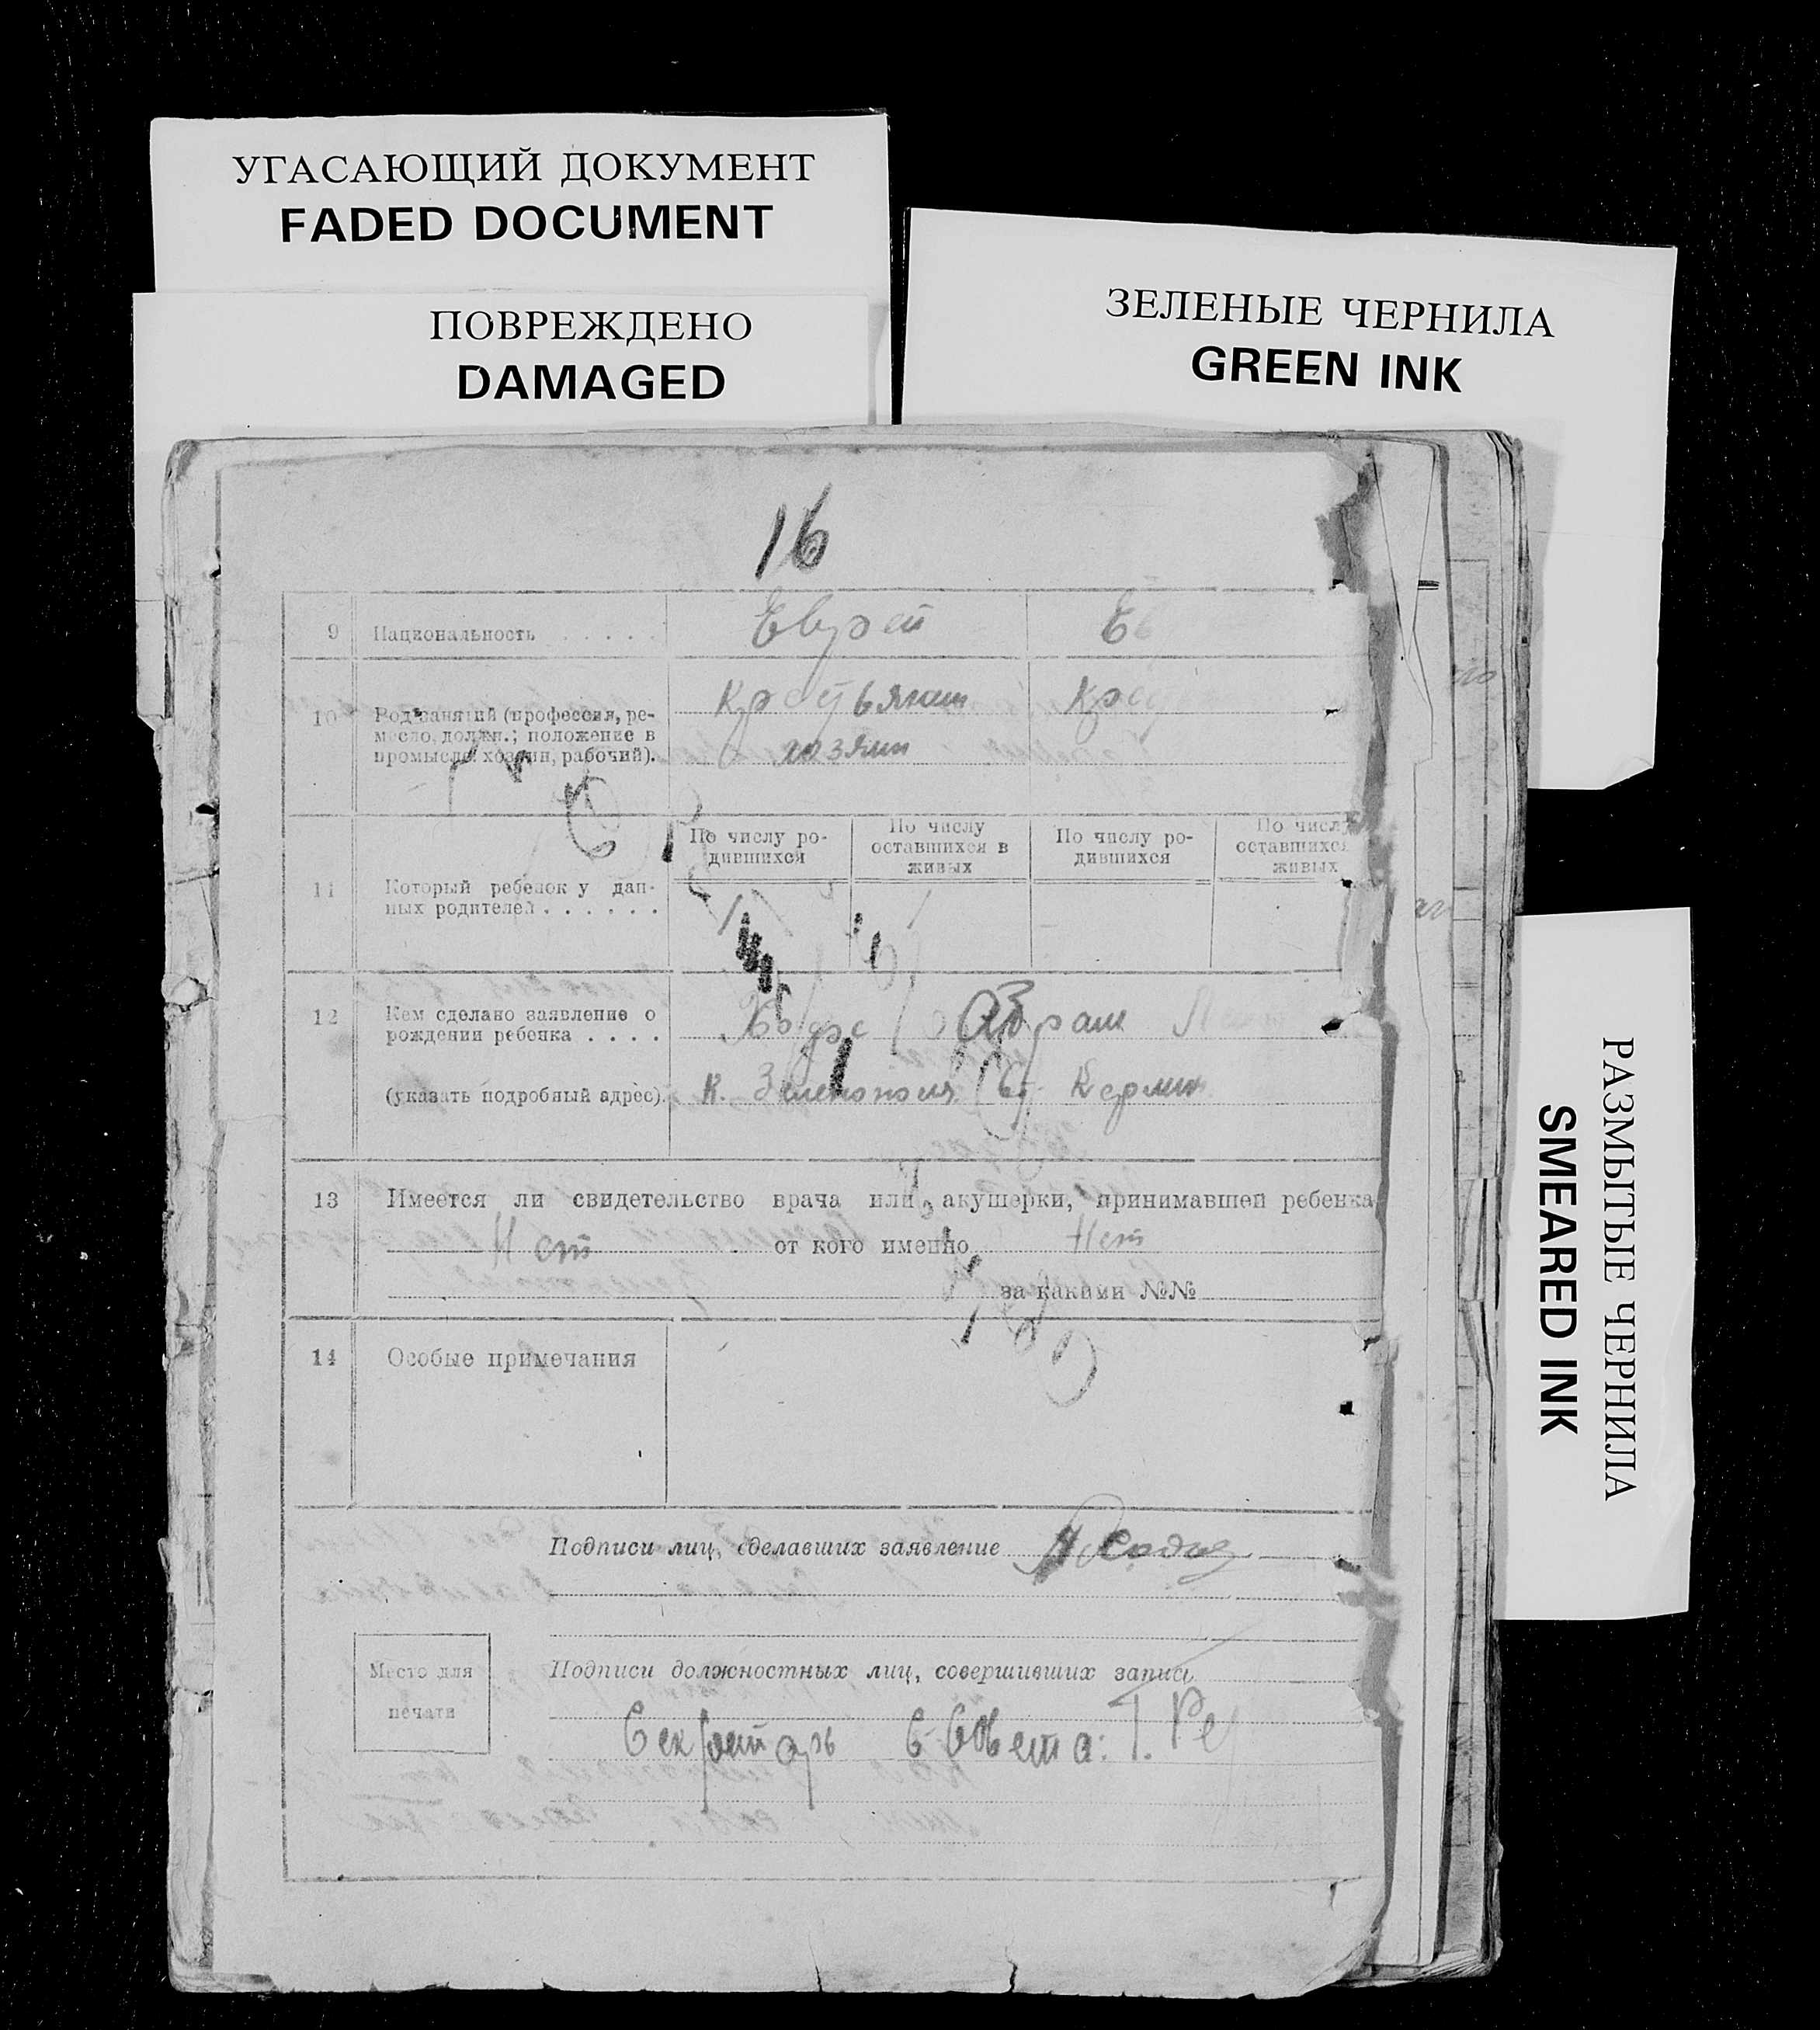 УГАСАЮЩИЙ ДОКУМЕНТ
FADED DOCUMENT
ПОВРЕЖДЕНО
DAMAGED
ЗЕЛЕНЫЕ ЧЕРНИЛА
GREEN INK
РАЗМЫТЫЕ ЧЕРНИЛА
SMEARED INK
16
9 Национальность . . . . . Еврей Ев
10 Род занятий (профессия, ре-
месло, должн.; положение в
промысле: хозяин, рабочий).
Крестьянин
хозяин
11 Который ребенок у дан-
ных родителей . . . . . .
По числу ро-
дившихся
По числу
оставшихся в
живых
По числу ро-
дившихся
По числу
оставшихся
живых
12 Кем сделано заявление о
рождении ребенка . . . .
Абрам
(указать подробный адрес).
к. Зеленополя
13 Имеется ли свидетельство врача или акушерки, принимавшей ребенка
Нет от кого именно Нет
за какими №№
14 Особые примечания
Подписи лиц, сделавших заявление
Место для
печати
Подписи должностных лиц, совершивших запись
Секретарь С-Совета: Т.